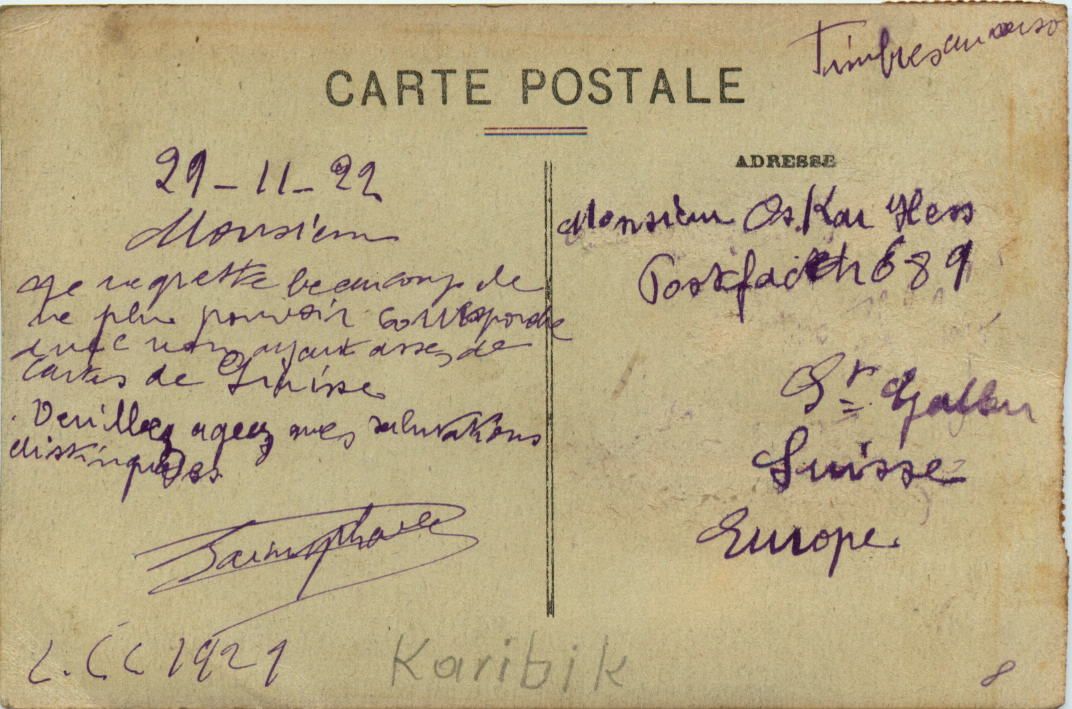 Timbres au verso
CARTE POSTALE
ADRESSE
29-11-22
Monsieur
Je regrette beaucoup de
ne plus pouvoir correspondre
avec vous ayant assez de
cartes de Suisse
. Veuillez agréez mes salutations
distinguées
Monsieur Oskar Hess
Postfach 689
St Gallen
Suisse
Europe.
L. CC 1921
Karibik
8